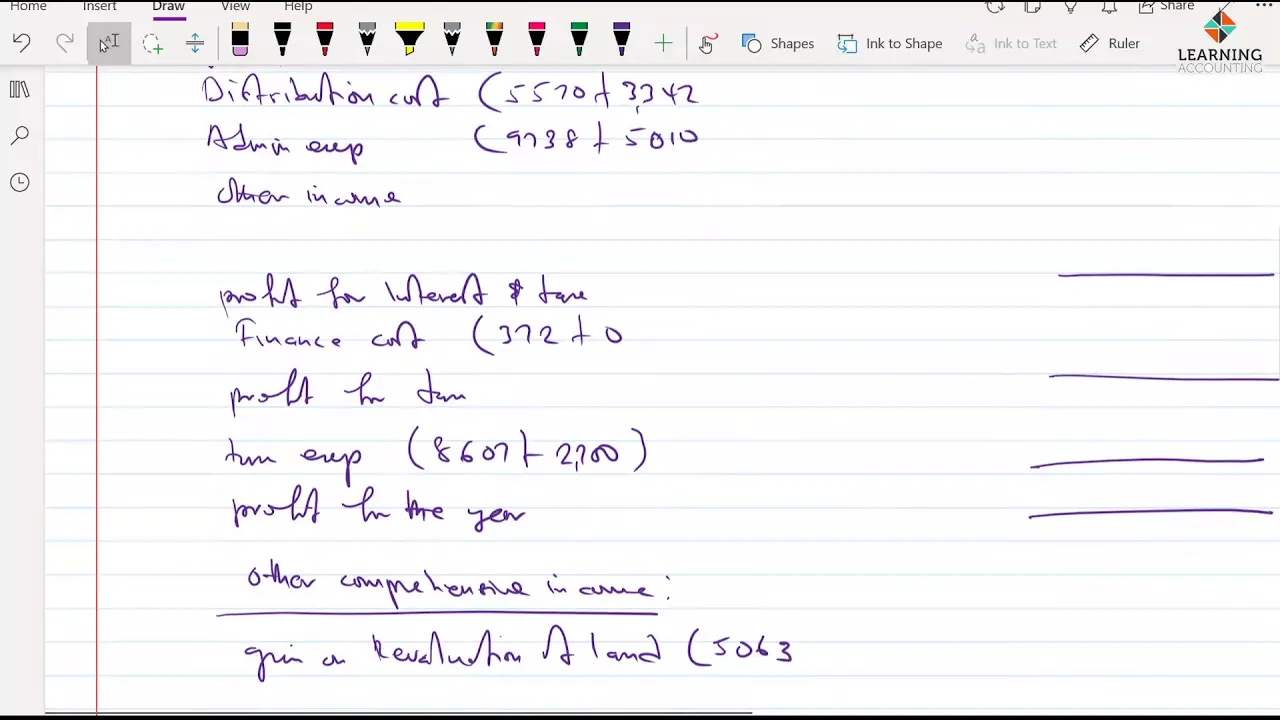 Home Insert Draw View Help Share
Shapes Ink to Shape Ink to Text Ruler
LEARNING
ACCOUNTING
Distribution cost (5570 + 3,342
Admin exp (9738 + 5010
other income
profit for Interest & tax
Finance cost (372 + 0
profit for tax
tax exp (8607 + 2,100)
profit for the year
other comprehensive income:
gain on Revaluation of land (5063